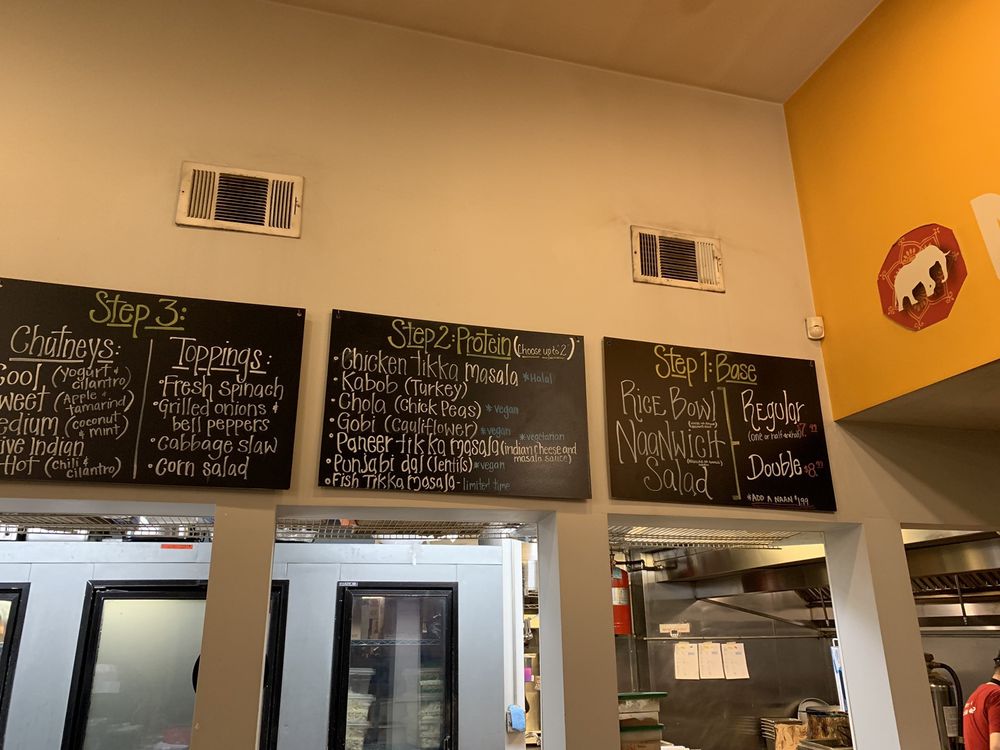 Step 3:
Chutneys:
Cool (yogurt & cilantro)
weet (Apple & tamarind)
edium (coconut & mint)
ive Indian
Hot (chili & cilantro)
Toppings:
• Fresh spinach
• Grilled onions &
bell peppers
• Cabbage slaw
• Corn salad
Step 2: Protein (choose up to 2)
• Chicken tikka masala *Halal
• Kabob (Turkey)
• Chola (Chick Peas) *vegan
• Gobi (Cauliflower) *vegan
• Paneer tikka masala (indian cheese and masala sauce) *vegetarian
• Punjabi dal (lentils) *vegan
• Fish Tikka Masala - limited time
Step 1: Base
Rice Bowl
Naanwich
Salad
Regular
(one or half & half) $7.99
Double $8.99
*ADD A NAAN $1.99